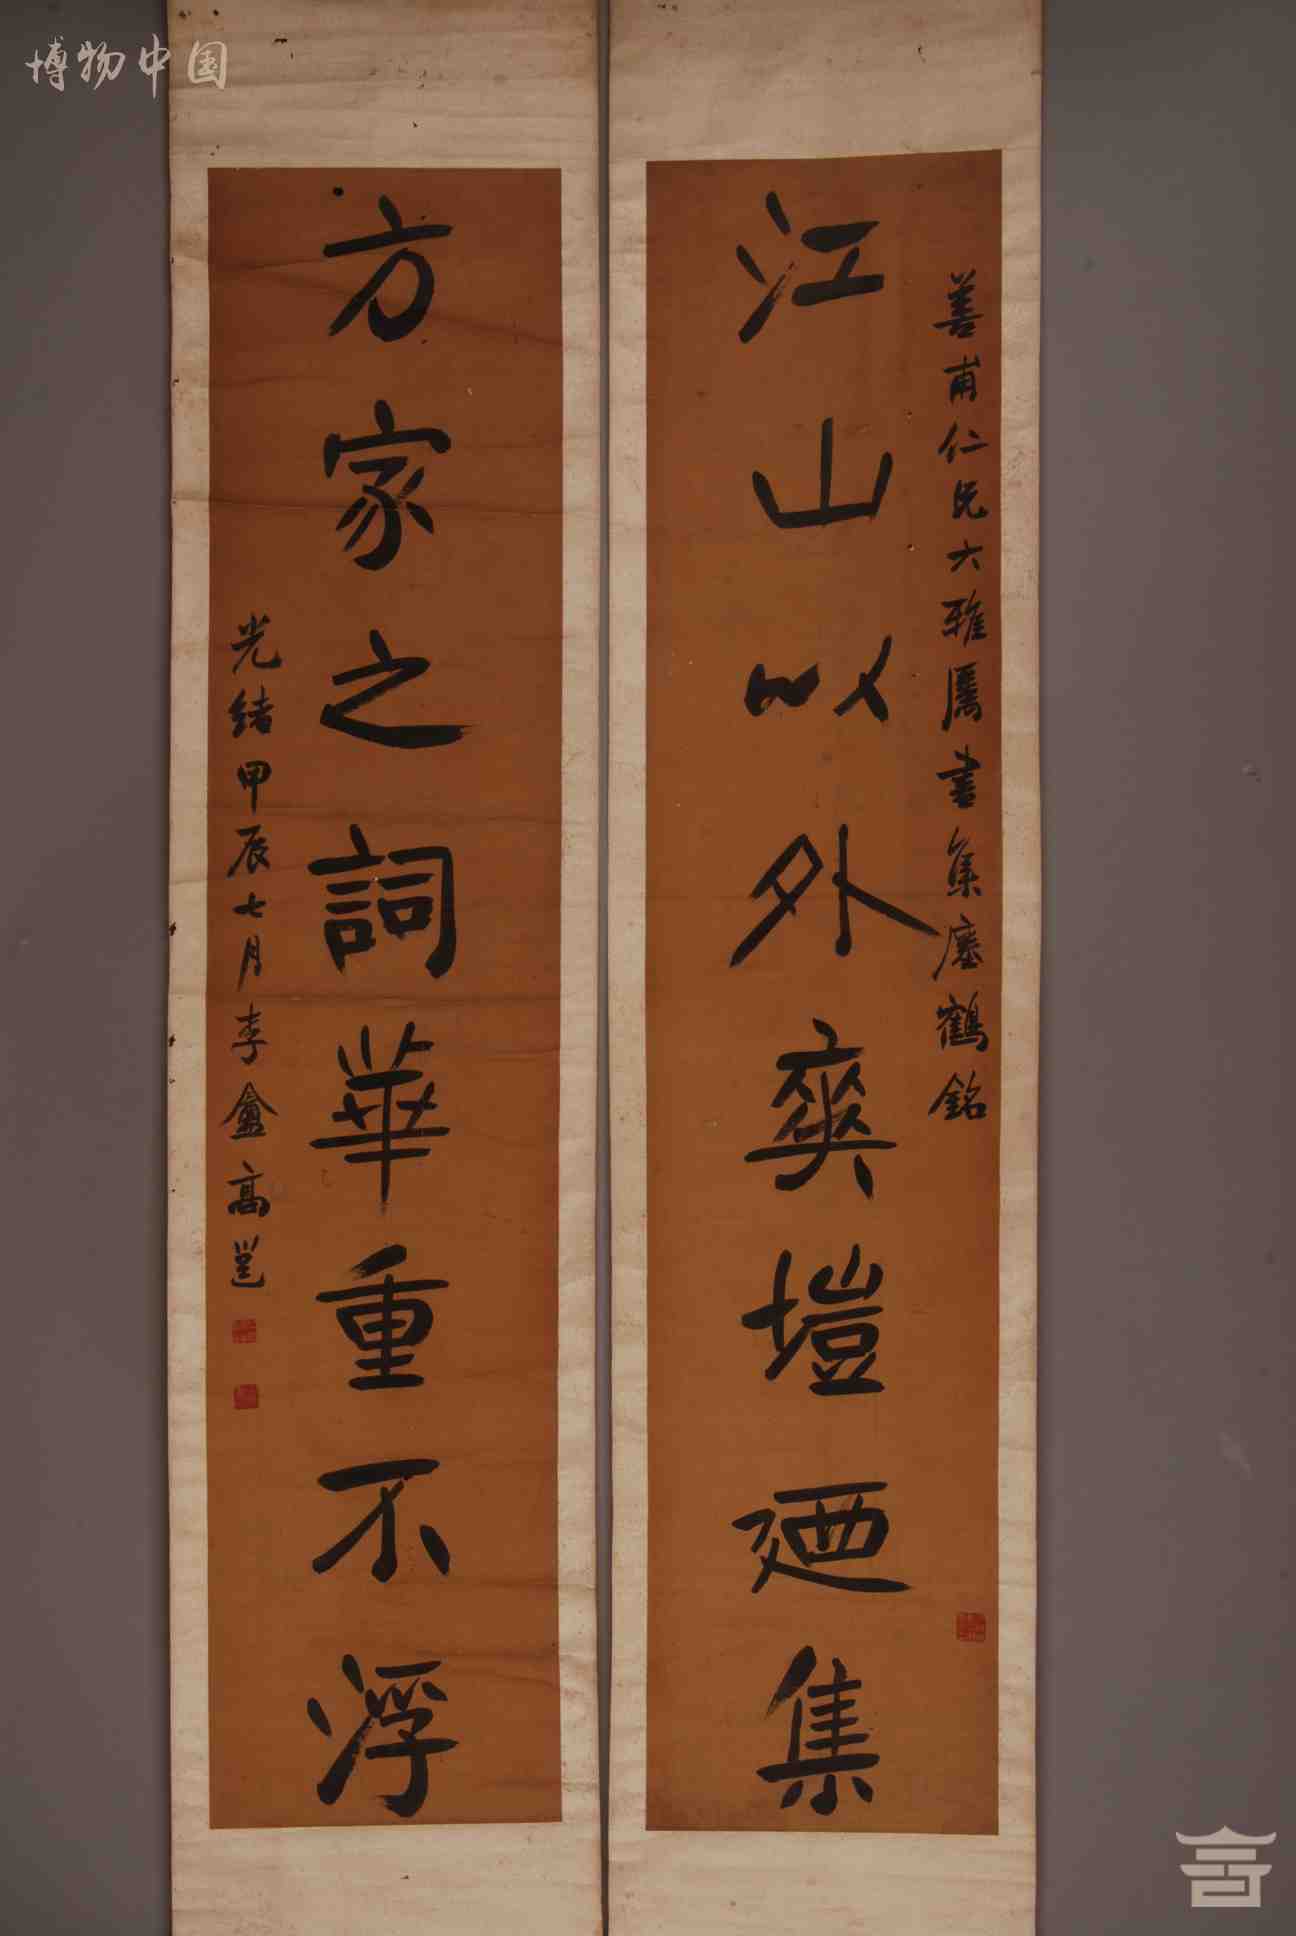 博物中国
善甫仁兄大雅属書集瘞鶴銘
江山以外爽塏廼集
方家之詞華重不浮
光緒甲辰七月李盦高邕